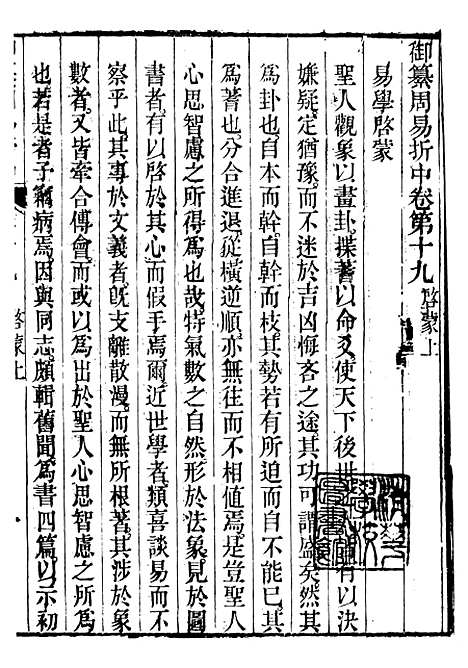 御纂周易折中卷第十九 啓蒙上
易學啓蒙
聖人觀象以畫卦揲蓍以命爻使天下後世 有以決
嫌疑定猶豫而不迷於吉凶悔吝之途其功可謂盛矣然其
爲卦也自本而幹自幹而枝其勢若有所迫而自不能已其
爲蓍也分合進退從橫逆順亦無往而不相値焉是豈聖人
心思智慮之所得爲也哉特氣數之自然形於法象見於圖
書者有以啓於其心而假手焉爾近世學者類喜談易而不
察乎此其專於文義者旣支離散漫而無所根著其涉於象
數者又皆牽合傅會而或以爲出於聖人心思智慮之所爲
也若是者予竊病焉因與同志頗輯舊聞爲書四篇以示初
啓蒙上